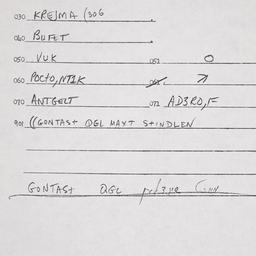 030 KREJMA (306
040 BUFET
050 VUK 051 O
060 POCTO,NTIK
070 ANTGELT 072 AD3RO,F
901 ((GONTAST QGL MAXT STINDLEN
GONTAST QGL